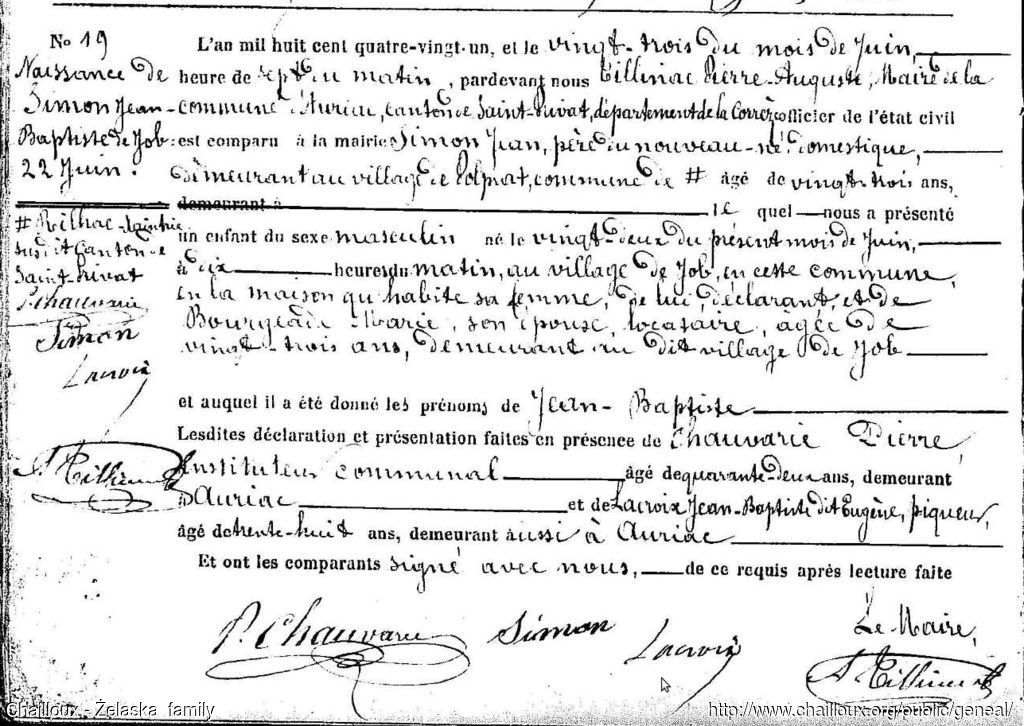 No 19
Naissance de
Simon Jean-
Baptiste de Job
22 Juin.
# Rilhac-Xaintrie
susdit Canton de
Saint-Privat
P. Chauvarie
Simon
Lacroix
L'an mil huit cent quatre-vingt-un, et le vingt-trois du mois de Juin,
heure de sept du matin, pardevant nous Tillinac Pierre-Auguste, Maire de la
commune d'Auriac, canton de Saint-Privat, département de la Corrèze officier de l'état civil
est comparu à la mairie Simon Jean, père du nouveau-né, domestique,
demeurant au village de commune de # âgé de vingt-trois ans,
demeurant à le quel nous a présenté
un enfant du sexe masculin né le vingt-deux du présent mois de Juin,
à dix heures du matin, au village de Job, en cette commune,
en la maison qu'habite sa femme, de lui, déclarant, et de
Bourgeade Marie, son épouse, locataire, âgée de
vingt-trois ans, demeurant au dit village de Job
et auquel il a été donné les prénoms de Jean-Baptiste
Lesdites déclaration et présentation faites en présence de Chauvarie Pierre,
Instituteur communal âgé de quarante-deux ans, demeurant
à Auriac et de Lacroix Jean-Baptiste dit Eugène, piqueur,
âgé de trente-huit ans, demeurant aussi à Auriac
Et ont les comparants signé avec nous, de ce requis après lecture faite
P. Chauvarie Simon Lacroix
Le Maire,
Chailloux - Želaska family http://www.chailloux.org/public/geneal/